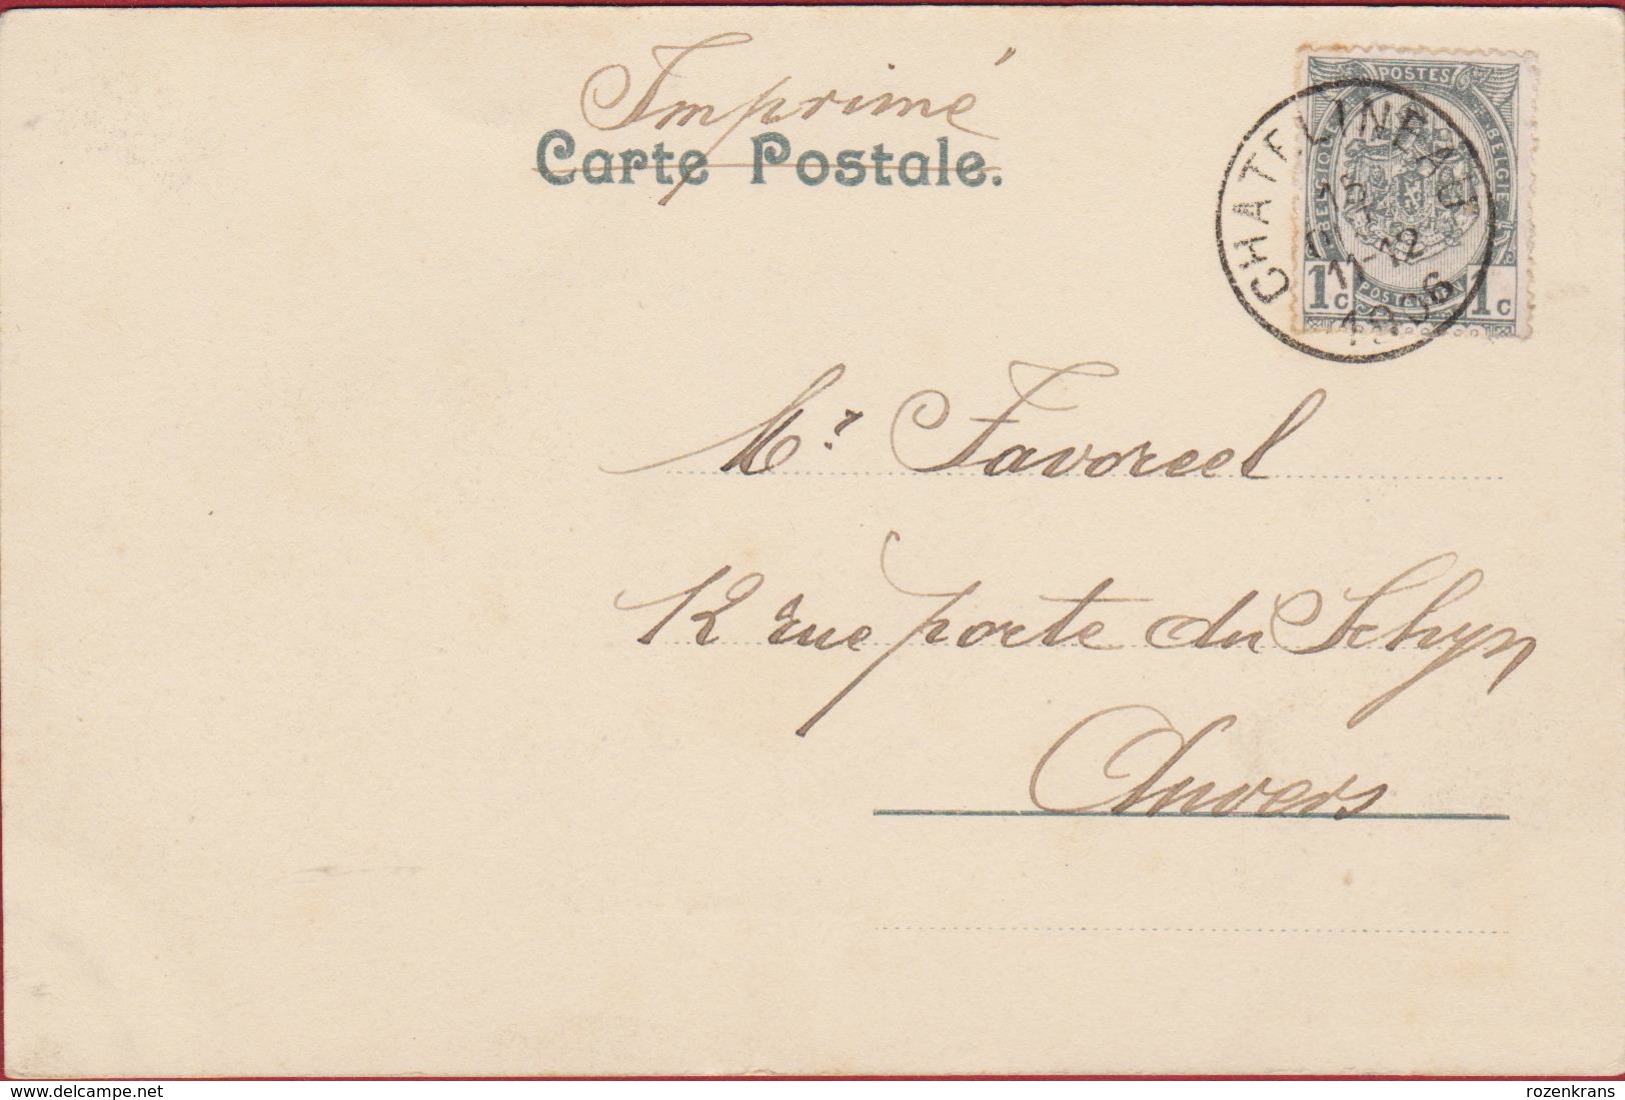 Imprimé
Carte Postale.
POSTES
BELGIQUE BELGIË
1c 1c
CHATELINEAU
15
11-12
1906
Mr Favoreel
12 rue porte du Schyn
Anvers
www.delcampe.net
rozenkrans